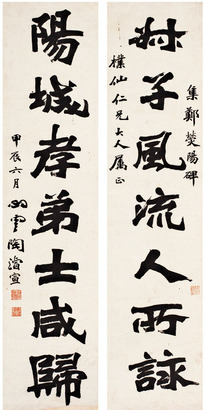 集鄭熒陽碑
叔子風流人所詠
樸仙仁兄大人属正
陽城孝弟士咸歸
甲辰六月心雲陶濬宣